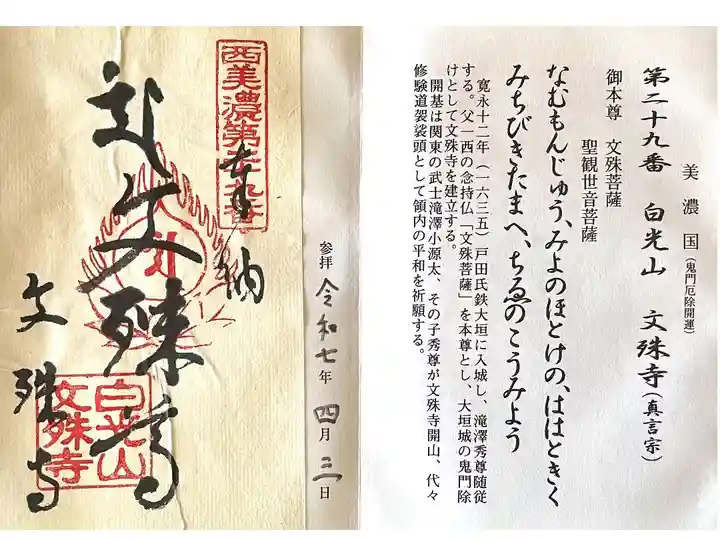 美濃国(鬼門厄除開運)
第二十九番 白光山 文殊寺(真言宗)
御本尊 文殊菩薩
聖観世音菩薩
なむもんじゅう、みよのほとけの、ははときく
みちびきたまへ、ちゑのこうみよう
寛永十二年(一六三五)戸田氏鉄大垣に入城し、滝澤秀尊随従
する。父一西の念持仏「文殊菩薩」を本尊とし、大垣城の鬼門除
けとして文殊寺を建立する。
開基は関東の武士滝澤小源太、その子秀尊が文殊寺開山、代々
修験道袈裟頭として領内の平和を祈願する。
参拝 令和七年 四月 三日
奉納
西美濃第二十九番
文殊
白光山
文殊寺
文殊寺